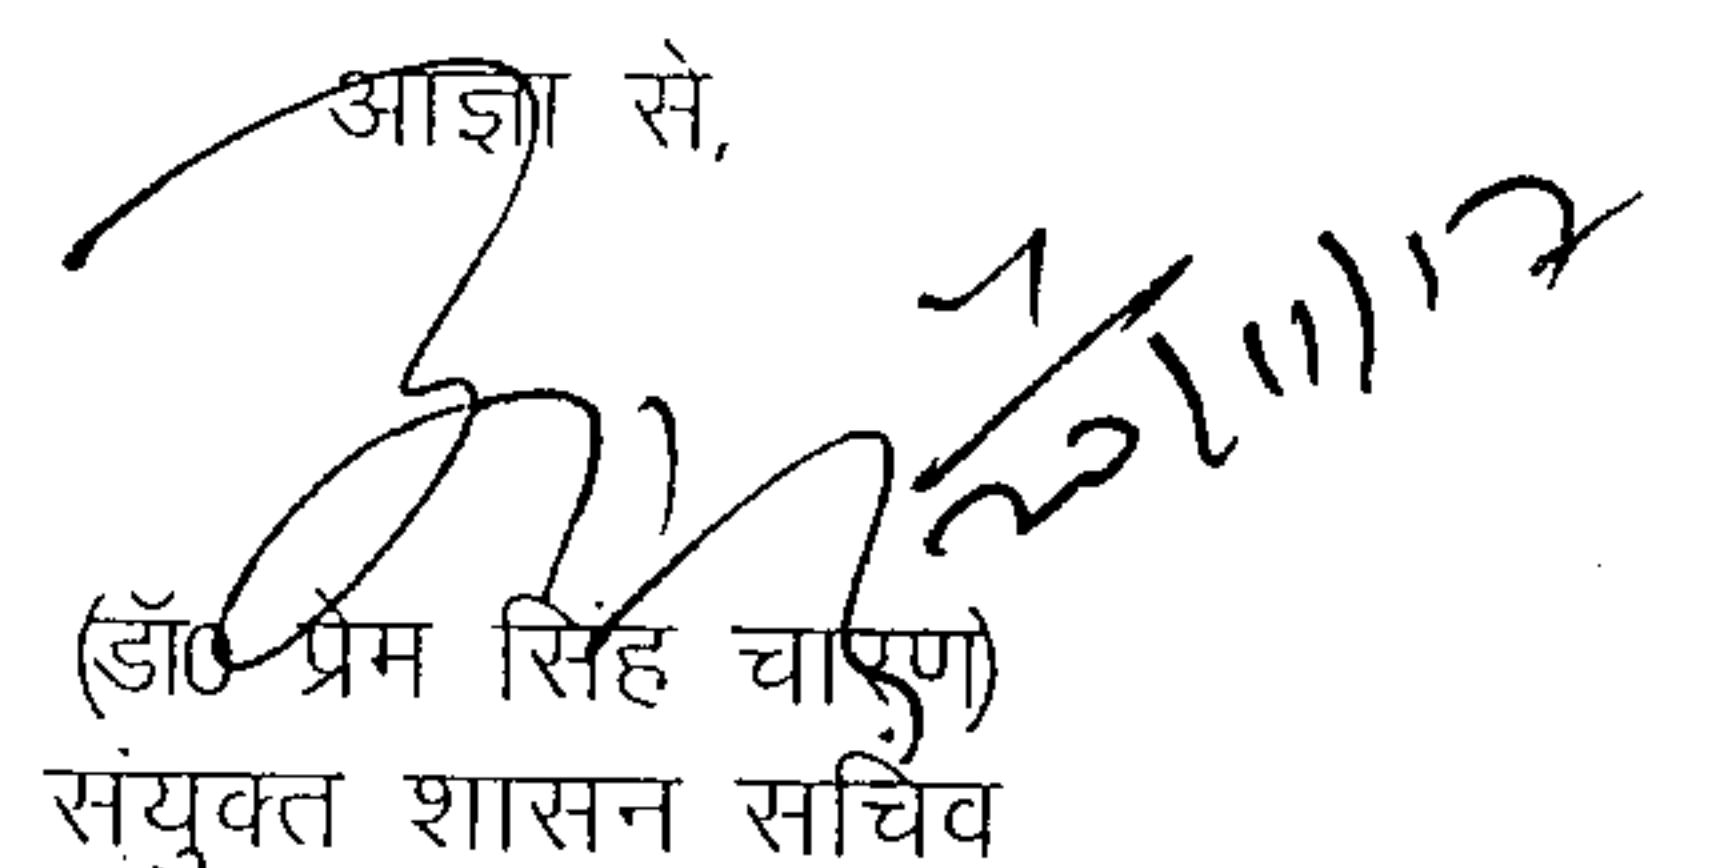 आज्ञा से,
(डॉ० प्रेम सिंह चारण)
संयुक्त शासन सचिव